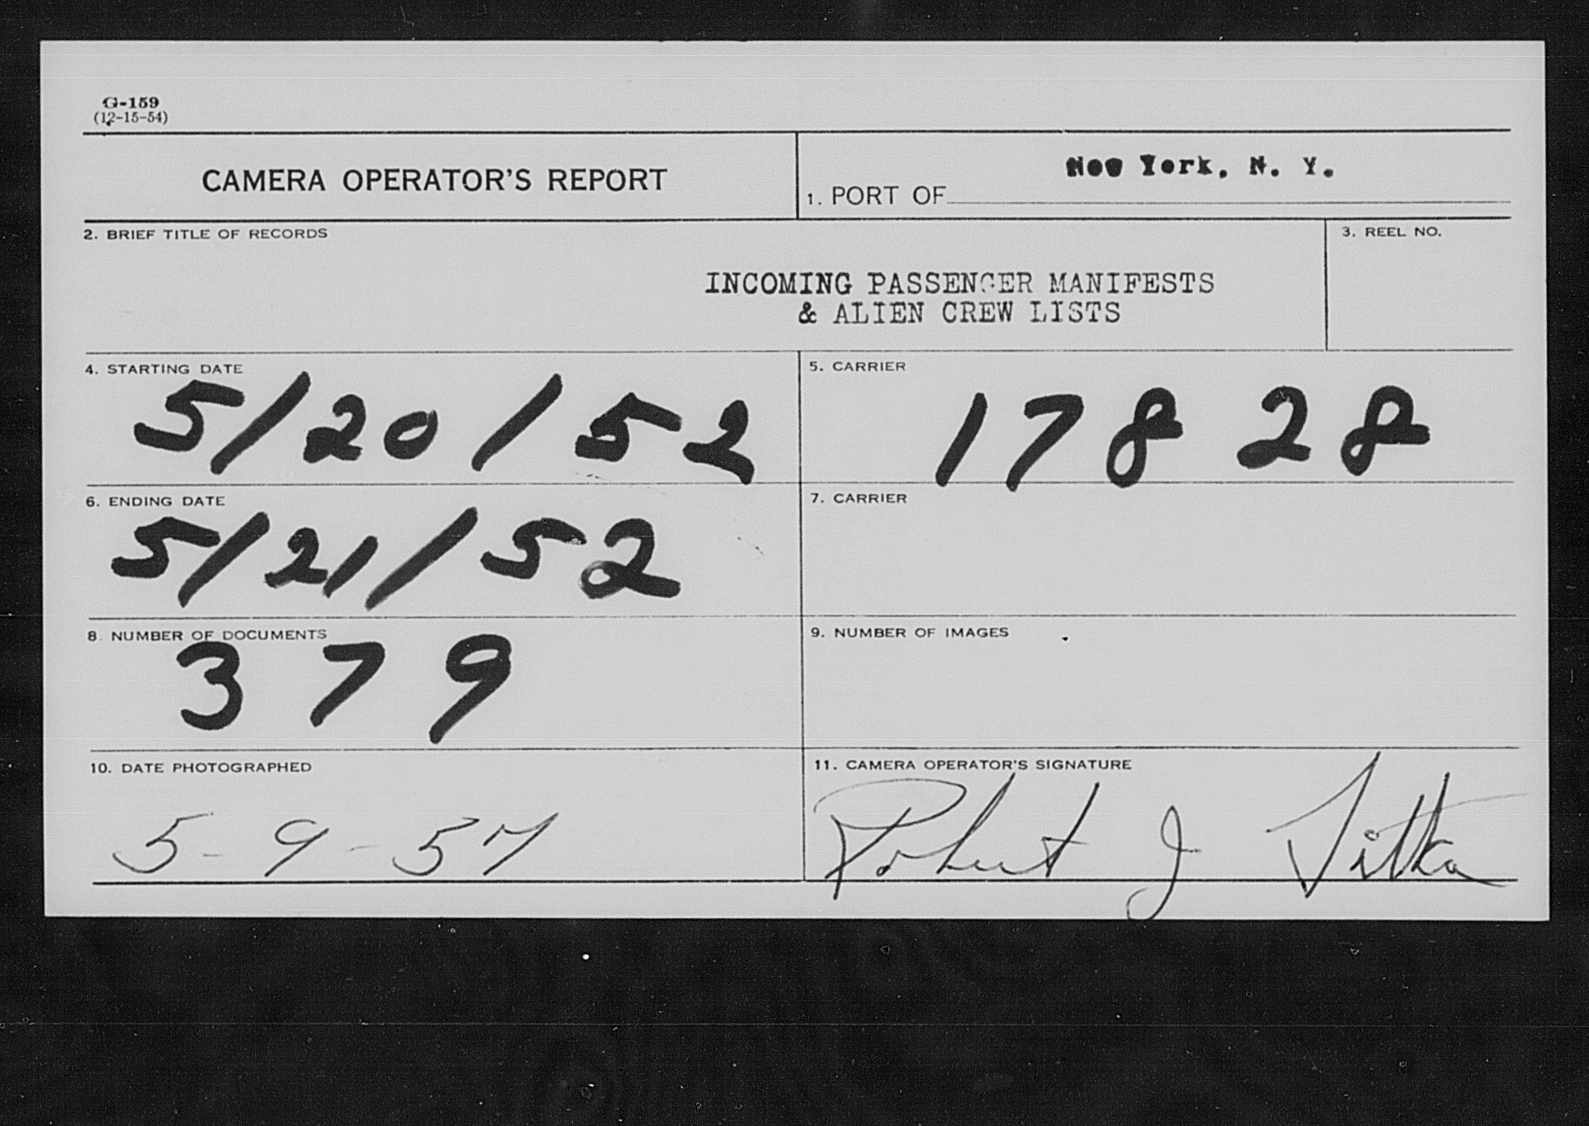 G-159
(12-15-54)
CAMERA OPERATOR'S REPORT
1. PORT OF New York, N. Y.
2. BRIEF TITLE OF RECORDS
INCOMING PASSENGER MANIFESTS
& ALIEN CREW LISTS
3. REEL NO.
4. STARTING DATE
5/20/52
5. CARRIER
17828
6. ENDING DATE
5/21/52
7. CARRIER
8. NUMBER OF DOCUMENTS
379
9. NUMBER OF IMAGES
10. DATE PHOTOGRAPHED
5-9-57
11. CAMERA OPERATOR'S SIGNATURE
Robert J